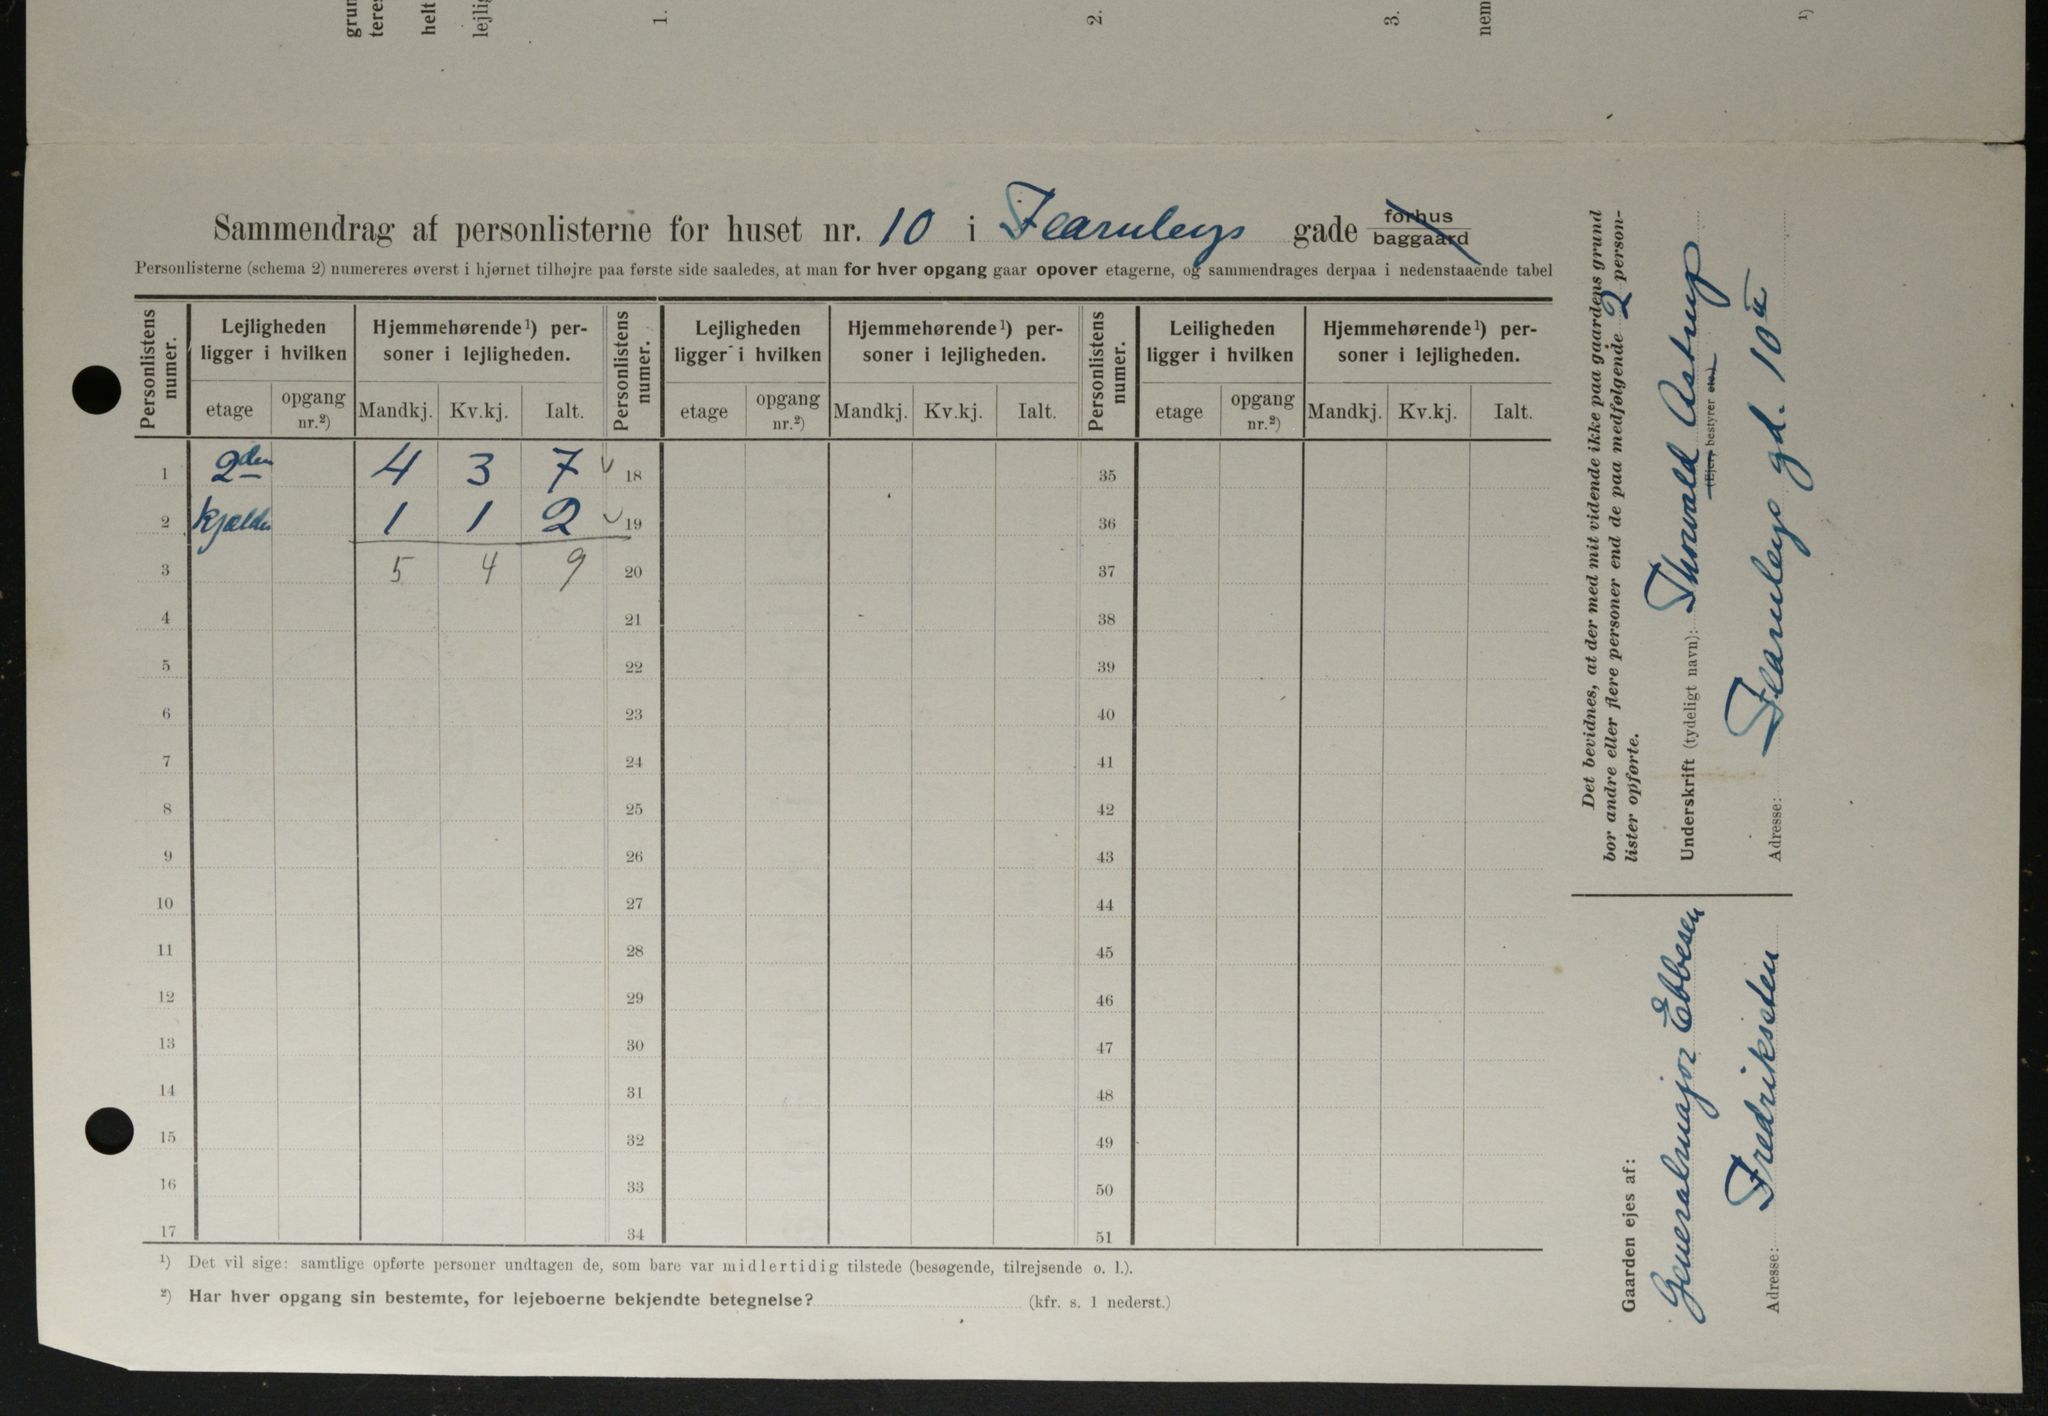 grun
teres
helt
lejlig
1.
2.
3.
nem
1)
Sammendrag af personlisterne for huset nr. 10 i Fearnleys gade forhus
baggaard
Personlisterne (schema 2) numereres øverst i hjørnet tilhøjre paa første side saaledes, at man for hver opgang gaar opover etagerne, og sammendrages derpaa i nedenstaaende tabel
Personlistens numer. Lejligheden ligger i hvilken Hjemmehørende1) personer i lejligheden. Personlistens numer. Lejligheden ligger i hvilken Hjemmehørende1) personer i lejligheden. Personlistens numer. Leiligheden ligger i hvilken Hjemmehørende1) personer i lejligheden.
etage opgang nr.2) Mandkj. Kv.kj. Ialt. etage opgang nr.2) Mandkj. Kv.kj. Ialt. etage opgang nr.2) Mandkj. Kv.kj. Ialt.
1 2den 4 3 7 18 35
2 kjælder 1 1 2 19 36
3 5 4 9 20 37
4 21 38
5 22 39
6 23 40
7 24 41
8 25 42
9 26 43
10 27 44
11 28 45
12 29 46
13 30 47
14 31 48
15 32 49
16 33 50
17 34 51
1) Det vil sige: samtlige opførte personer undtagen de, som bare var midlertidig tilstede (besøgende, tilrejsende o. l.).
2) Har hver opgang sin bestemte, for lejeboerne bekjendte betegnelse? (kfr. s. 1 nederst.)
Det bevidnes, at der med mit vidende ikke paa gaardens grund
bor andre eller flere personer end de paa medfølgende 2 person-
lister opførte.
Underskrift (tydeligt navn): Thorvald Astrup
(Ejer, bestyrer etc.)
Adresse: Fearnleys gd. 10 II
Gaarden ejes af:
Generalmajor Ebbesen
Adresse: Fredriksten